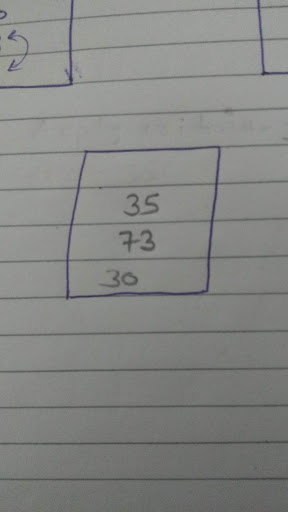 35
73
30